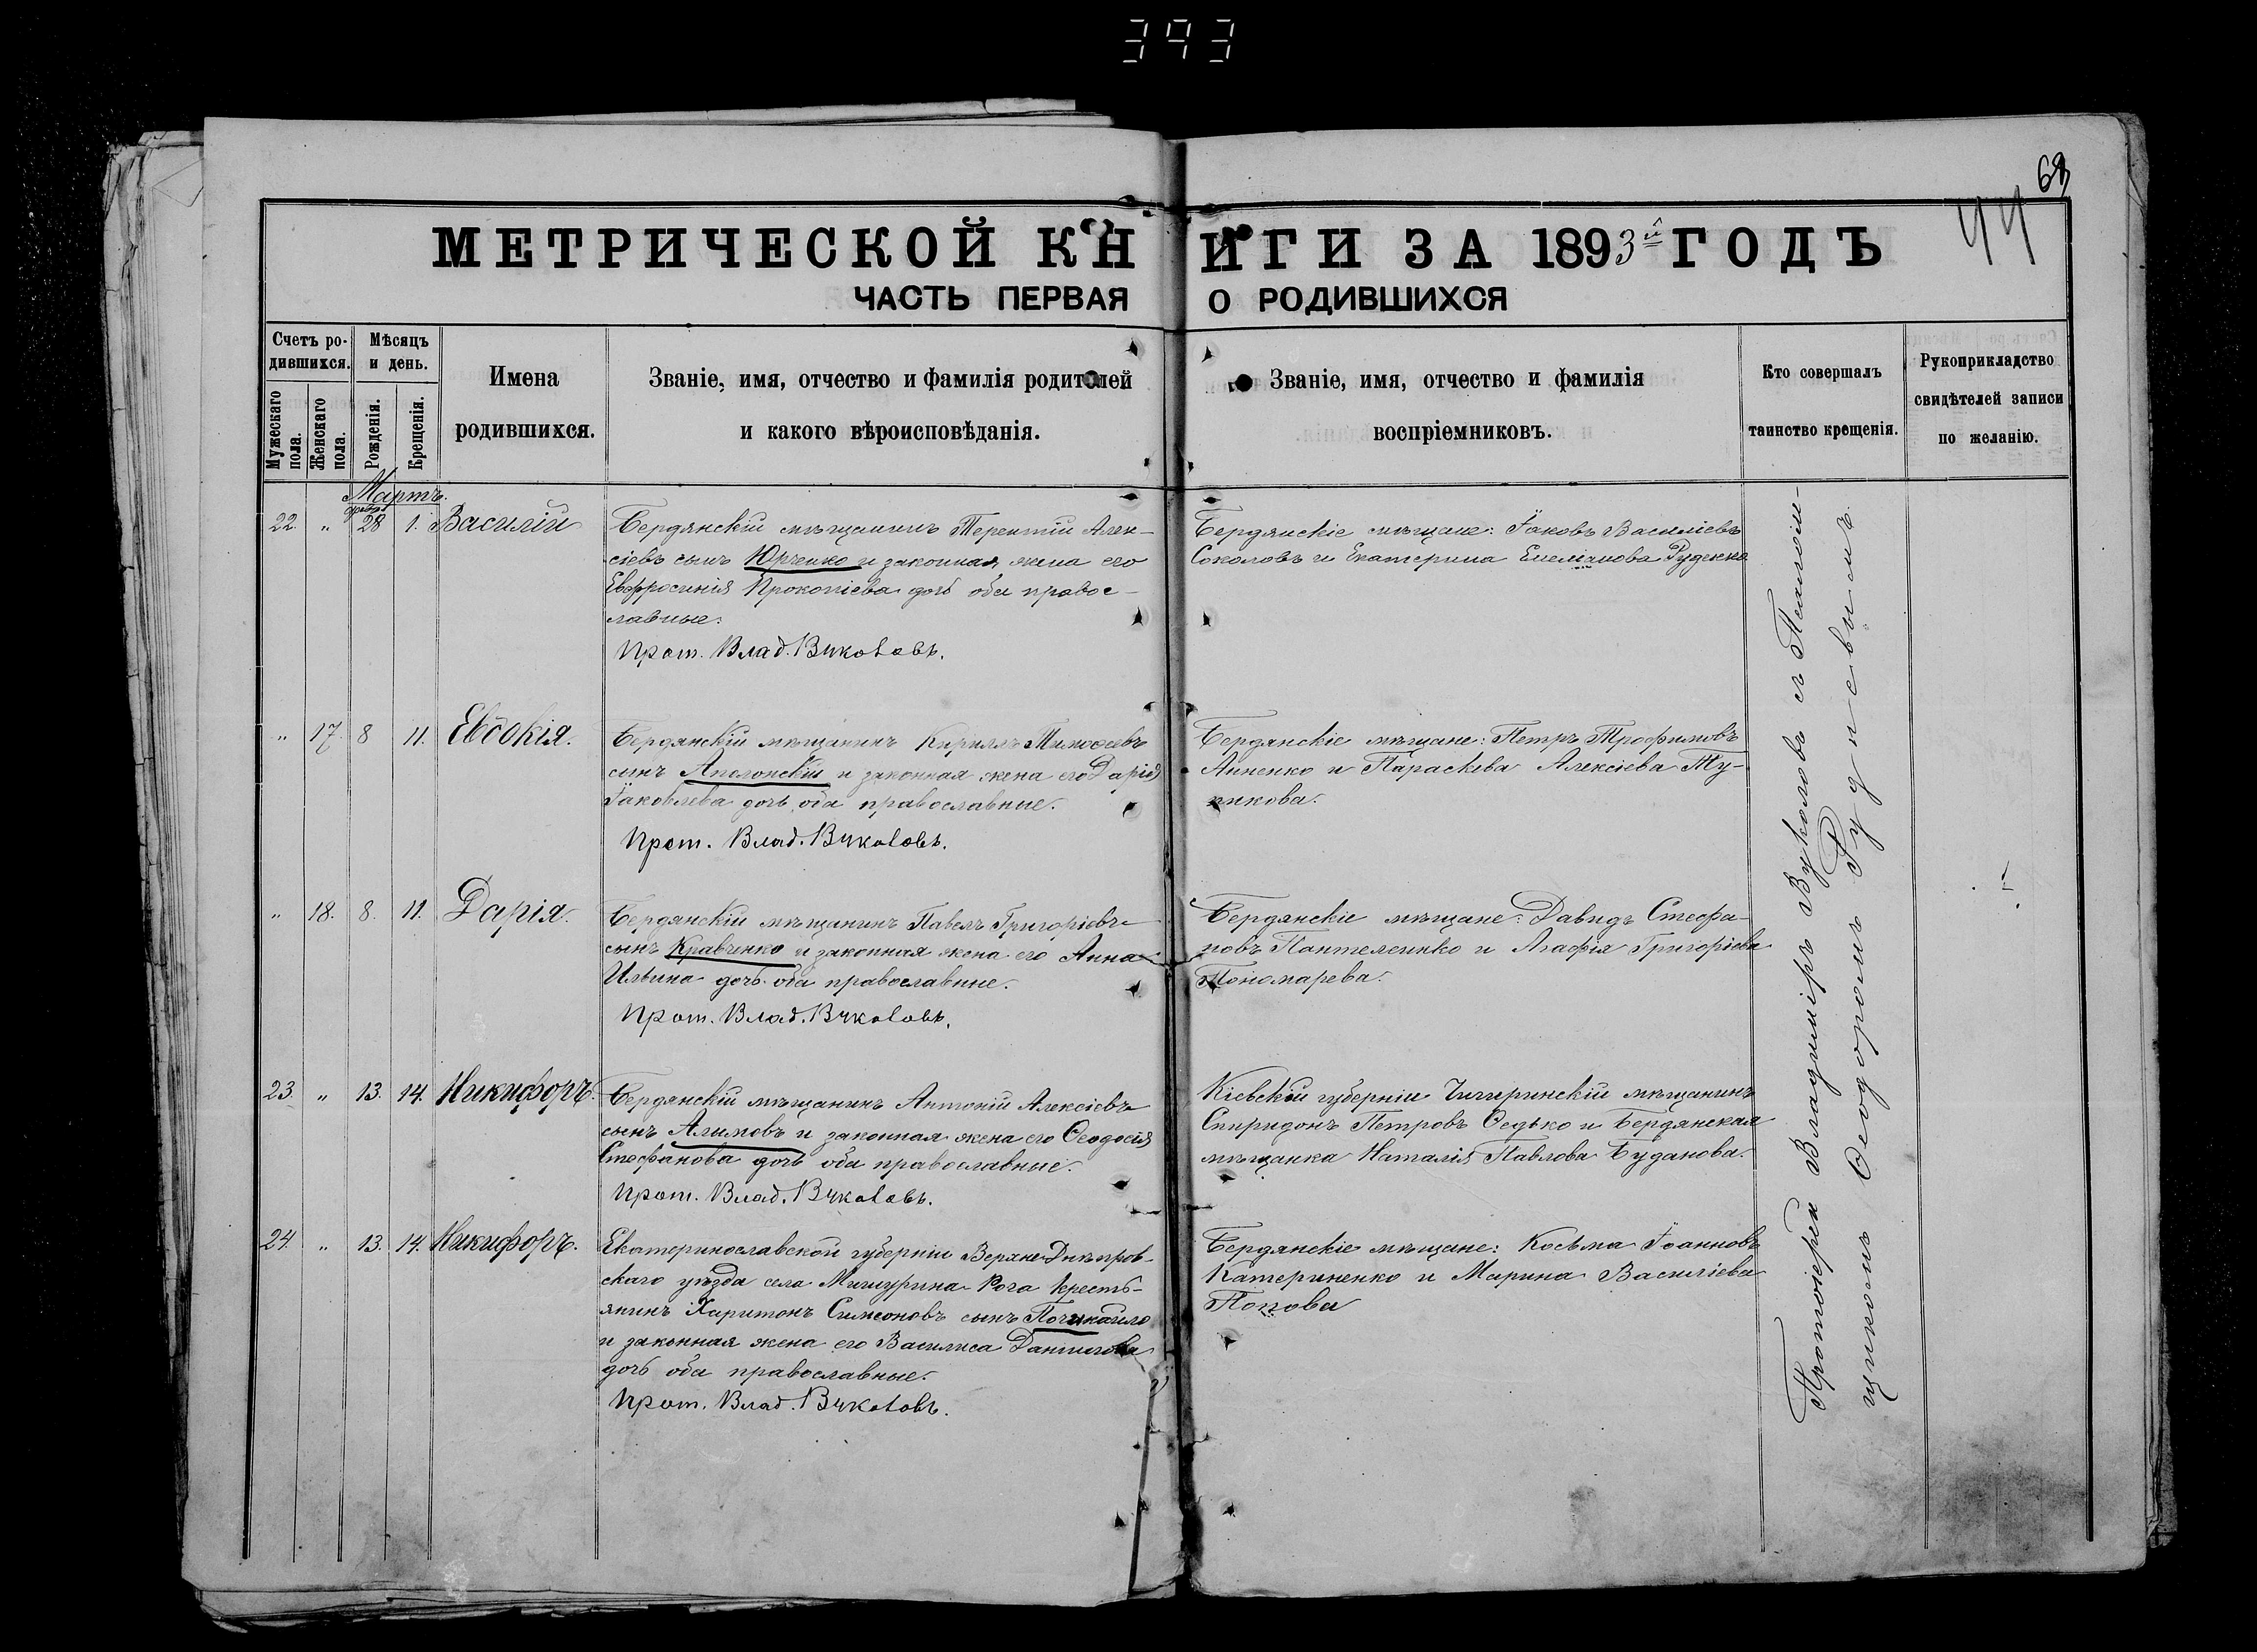 393
69
44
МЕТРИЧЕСКОЙ КНИГИ ЗА 1893й ГОДЪ
ЧАСТЬ ПЕРВАЯ О РОДИВШИХСЯ
Счетъ ро-
дившихся.
Мужескаго
пола.
Женскаго
пола.
Мѣсяцъ
и день.
Рожденія.
Крещенія.
Имена
родившихся.
Званіе, имя, отчество и фамилія родителей
и какого вѣроисповѣданія.
Званіе, имя, отчество и фамилія
воспріемниковъ.
Кто совершалъ
таинство крещенія.
Рукоприкладство
свидѣтелей записи
по желанію.
Мартъ.
22. " 28 1. Василій
Бердянскій мѣщанинъ Терентій Алек-
сіевъ сынъ Юрченко и законная жена его
Евфросинія Прокопіева дочь оба правос-
лавные.
Прот. Влад. Вуколовъ.
Бердянскіе мѣщане: Іаковъ Василіевъ
Соколовъ и Екатерина Емеліанова Руденко
" 17. 8 11. Евдокія.
Бердянскій мѣщанинъ Кириллъ Тимоѳеевъ
сынъ Аполонскій и законная жена его Дарія
Іаковлева дочь, оба православные.
Прот. Влад. Вуколовъ.
Бердянскіе мѣщане: Петръ Трофимовъ
Анненко и Параскева Алексіева Ту-
пикова.
" 18. 8. 11. Дарія.
Бердянскій мѣщанинъ Павелъ Григоріевъ
сынъ Кравченко и законная жена его Анна
Ильина дочь оба православные.
Прот. Влад. Вуколовъ.
Бердянскіе мѣщане: Давидъ Стефа-
новъ Пантелеенко и Агафія Григоріева
Пономарева.
23. " 13. 14. Никифоръ.
Бердянскій мѣщанинъ Антоній Алексіевъ
сынъ Алымовъ и законная жена его Ѳеодосія
Стефанова дочь оба православные.
Прот. Влад. Вуколовъ.
Кіевской губерніи Чигиринскій мѣщанинъ
Спиридонъ Петровъ Ѳедько и Бердянская
мѣщанка Наталія Павлова Буданова.
24. " 13. 14. Никифоръ.
Екатеринославской губерніи Верхне-Днѣпров-
скаго уѣзда села Мишурина-Рога кресть-
янинъ Харитонъ Симеоновъ сынъ Почикайло
и законная жена его Василиса Даниилова
дочь оба православные.
Прот. Влад. Вуколовъ.
Бердянскіе мѣщане: Косьма Іоанновъ
Катериненко и Марина Василіева
Попова
Протоіерей Владиміръ Вуколовъ съ Псаломщ-
щикомъ Ѳеодоромъ Рудневымъ.